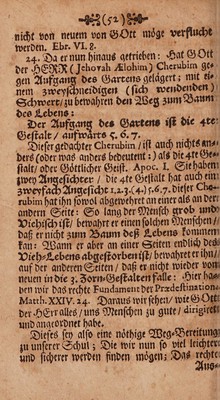 (52)
nicht von neuem von GOtt möge verflucht
werden. Ebr. VI. 8.
24. Da er nun hinaus getrieben: Hat GOtt
der HERR (Jehovah Ælohim) Cherubim ge-
gen Aufgang des Gartens gelägert; mit ei-
nem zweyschneidigen (sich wendenden)
Schwert, zu bewahren den Weg zum Baum
des Lebens:
Der Aufgang des Gartens ist die 4te
Gestalt / aufwärts 5. 6. 7.
Dieser gedachter Cherubim / ist auch nichts an-
ders (oder was anders bedeutent:) als die 4te Ge-
stalt / oder Göttlicher Geist. Apoc. 1. Sie haben
zwey Angesichter / die 4te Gestalt hat auch ein
zweyfach Angesicht 1. 2. 3. (4.) 5. 6. 7. dieser Che-
rubim hat ihn sowol abgewehret an einer als an der
andern Seite: So lang der Mensch grob und
Viehisch ist / bewahret er einen solchen Menschen /
daß er nicht zum Baum des Lebens kommen
kan: Wann er aber an einer Seiten endlich des
Vieh-Lebens abgestorben ist / bewahret er ihn /
auf der anderen Seiten / daß er nicht wieder von
neuen in die 3. Zorn-Gestalten falle: Hier ha-
ben wir das rechte Fundament der Prædestination
Matth. XXIV. 24. Daraus wir sehen / wie GOtt
der HErr alles / uns Menschen zu gute / dirigiret
und angeordnet habe.
Dieses sey also eine nöthige Weg-Bereitung
zu unserer Schul: Die wir nun so viel leichter
und sicherer werden finden mögen; Das rechte
Aus-